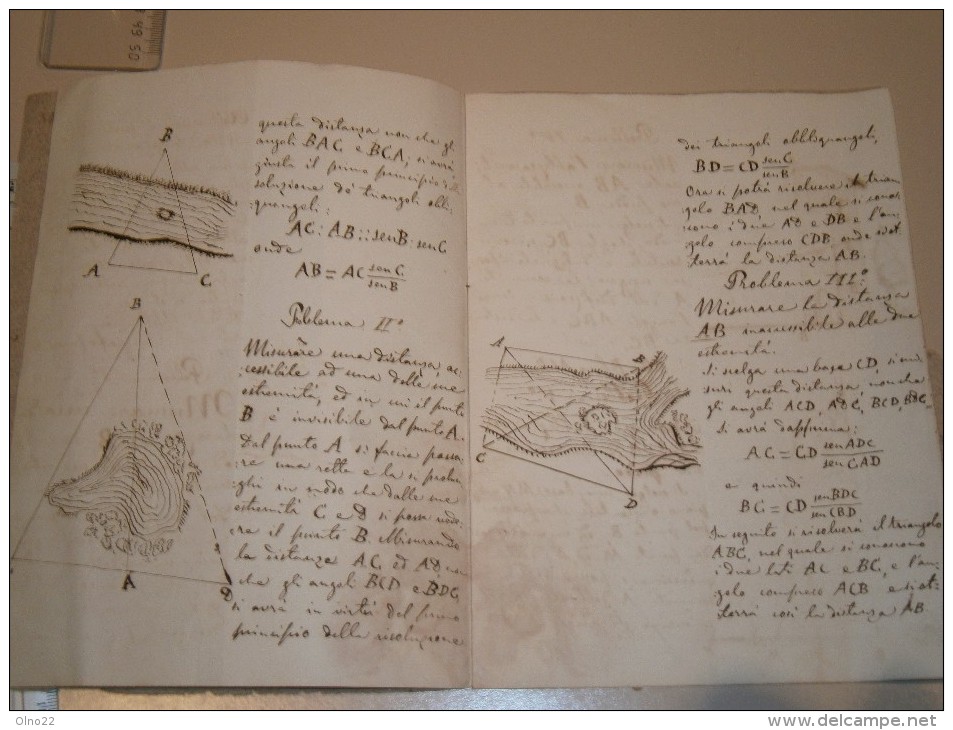 B
A
C
questa distanza non che gli
angoli BAC e BCA, si avrà
giusta il primo principio della
soluzione de' triangoli obli-
quangoli:
AC : AB :: senB : senC
onde
AB = AC senC / senB
Problema II°
B
A
D
Misurare una distanza ac-
cessibile ad una delle sue
estremità, ed in cui il punto
B è invisibile dal punto A.
Dal punto A si faccia passa-
re una retta e la si prolun-
ghi in modo che dalle sue
estremità C e D si possa vede-
re il punto B. Misurando
la distanza AC, ed AD, non
che gli angoli BCD e BDC,
si avrà in virtù del primo
principio della risoluzione
dei triangoli obbliquangoli,
BD = CD senC / senB
Ora si potrà risolvere il trian-
golo BAD, nel quale si conos-
cono i due AD e DB e l'an-
golo compreso CDB, onde si ot-
terrà la distanza AB.
Problema III°:
Misurare la distanza
AB inaccessibile alle due
estremità.
Si scelga una base CD, si mi-
suri questa distanza, non che
gli angoli ACD, ADC, BCD, BDC,
si avrà dapprima:
AC = CD senADC / senCAD
e quindi
BC = CD senBDC / senCBD
In seguito si risolverà il triangolo
ABC, nel quale si conoscono
i due lati AC e BC, e l'an-
golo compreso ACB e si ot-
terrà così la distanza AB
A
B
C
D
49 50
Olno22
www.delcampe.net